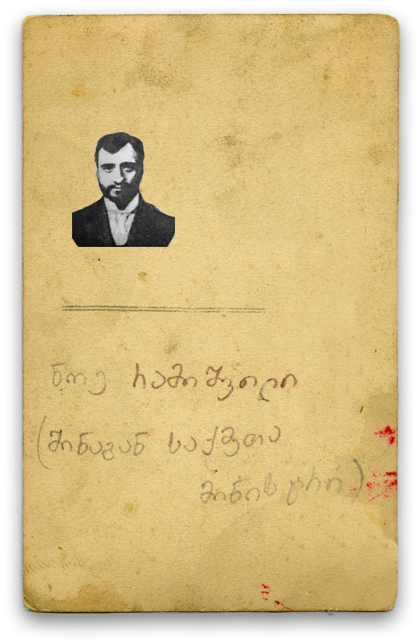 ნოე რამიშვილი
(შინაგან საქმეთა
მინისტრი)